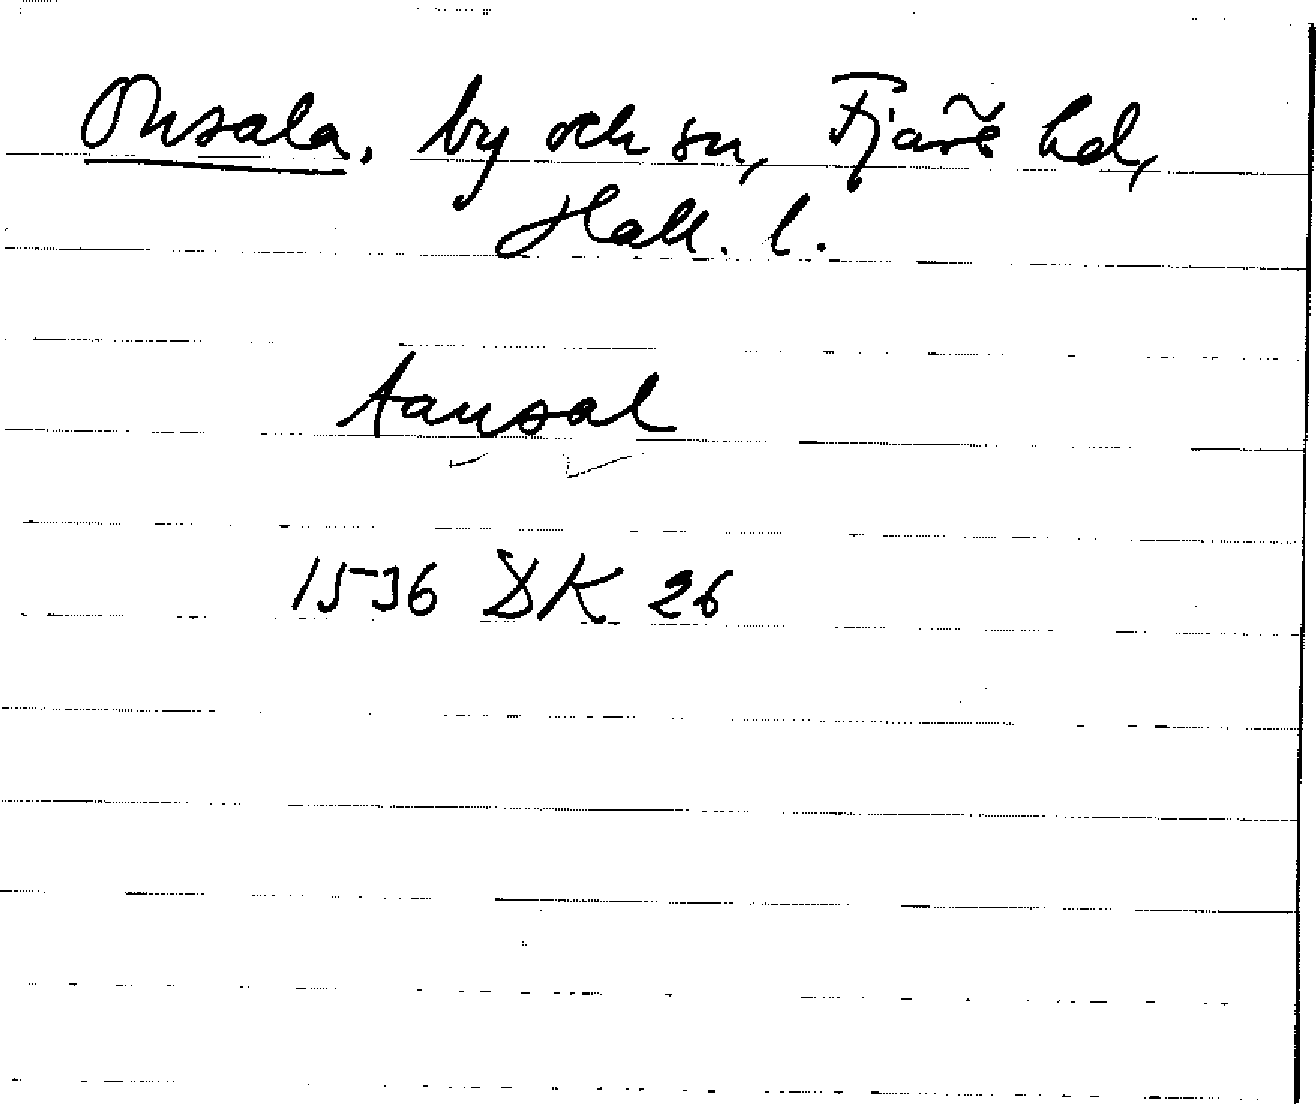 Onsala, by och sn, Fjäre hd,
Hall. l.
Aansal
1536 DK 26